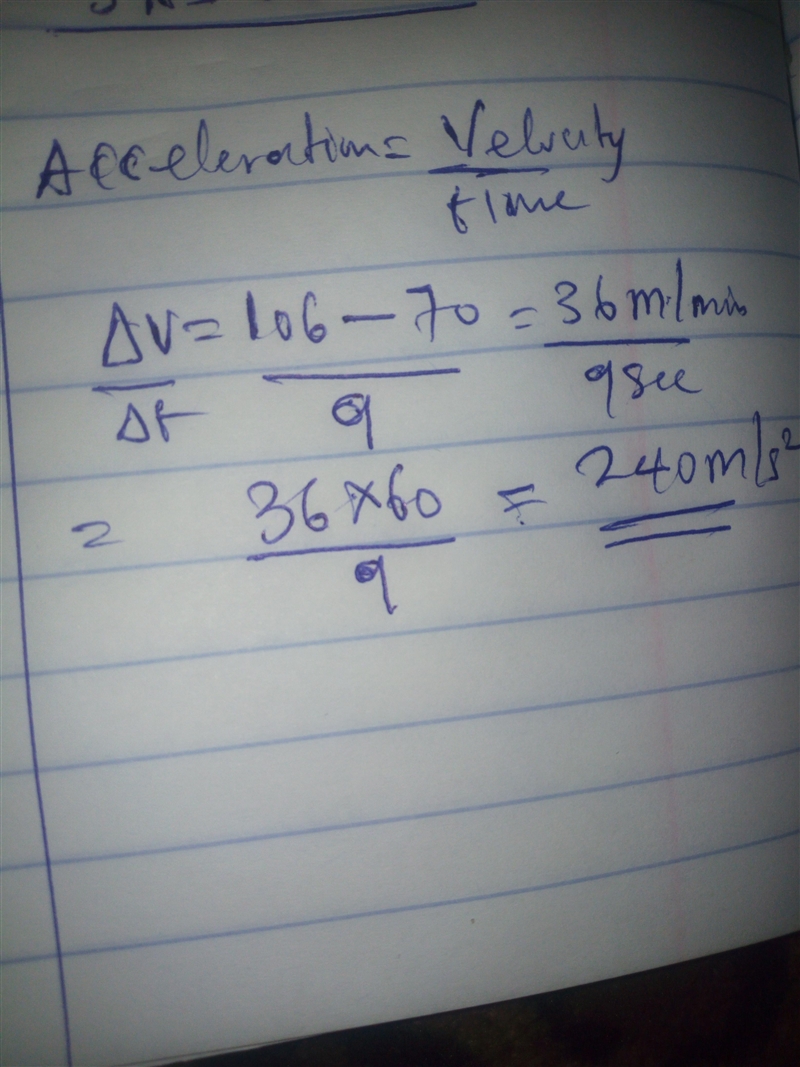 Acceleration = Velocity
time
ΔV = 106 - 70 = 36m/min
Δt 9 9sec
= 36 x 60 = 240m/s²
9